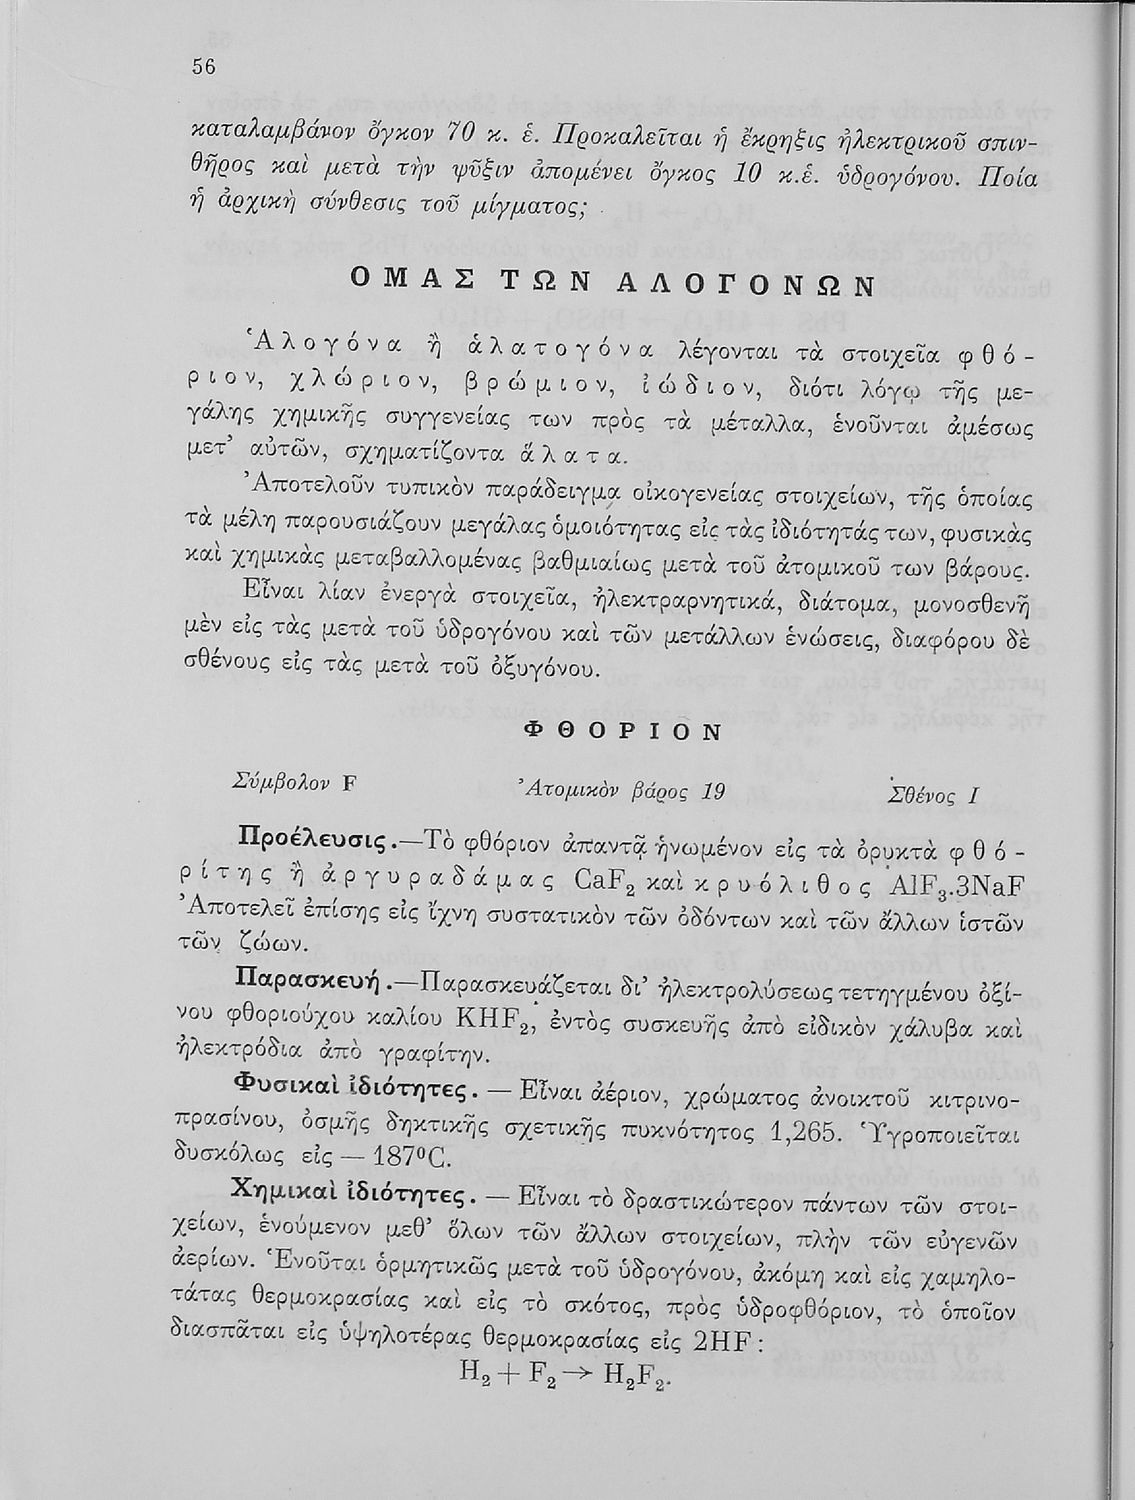 56
καταλαμβάνον ὄγκον 70 κ. ἑ. Προκαλεῖται ἡ ἔκρηξις ἠλεκτρικοῦ σπιν-
θῆρος καὶ μετὰ τὴν ψῦξιν ἀπομένει ὄγκος 10 κ.ἑ. ὑδρογόνου. Ποία
ἡ ἀρχικὴ σύνθεσις τοῦ μίγματος;
ΟΜΑΣ ΤΩΝ ΑΛΟΓΟΝΩΝ
Ἁλογόνα ἢ ἁλατογόνα λέγονται τὰ στοιχεῖα φθό-
ριον, χλώριον, βρώμιον, ἰώδιον, διότι λόγῳ τῆς με-
γάλης χημικῆς συγγενείας των πρὸς τὰ μέταλλα, ἑνοῦνται ἀμέσως
μετ’ αὐτῶν, σχηματίζοντα ἅλατα.
Ἀποτελοῦν τυπικὸν παράδειγμα οἰκογενείας στοιχείων, τῆς ὁποίας
τὰ μέλη παρουσιάζουν μεγάλας ὁμοιότητας εἰς τὰς ἰδιότητάς των, φυσικὰς
καὶ χημικὰς μεταβαλλομένας βαθμιαίως μετὰ τοῦ ἀτομικοῦ των βάρους.
Εἶναι λίαν ἐνεργὰ στοιχεῖα, ἠλεκτραρνητικά, διάτομα, μονοσθενῆ
μὲν εἰς τὰς μετὰ τοῦ ὑδρογόνου καὶ τῶν μετάλλων ἑνώσεις, διαφόρου δὲ
σθένους εἰς τὰς μετὰ τοῦ ὀξυγόνου.
ΦΘΟΡΙΟΝ
Σύμβολον F Ἀτομικὸν βάρος 19 Σθένος I
Προέλευσις.—Τὸ φθόριον ἀπαντᾷ ἡνωμένον εἰς τὰ ὀρυκτὰ φθό-
ρίτης ἢ ἀργυραδάμας CaF₂ καὶ κρυόλιθος AlF₃.3NaF
Ἀποτελεῖ ἐπίσης εἰς ἴχνη συστατικὸν τῶν ὀδόντων καὶ τῶν ἄλλων ἱστῶν
τῶν ζώων.
Παρασκευή.—Παρασκευάζεται δι’ ἠλεκτρολύσεως τετηγμένου ὀξί-
νου φθοριούχου καλίου KHF₂, ἐντὸς συσκευῆς ἀπὸ εἰδικὸν χάλυβα καὶ
ἠλεκτρόδια ἀπὸ γραφίτην.
Φυσικαὶ ἰδιότητες. — Εἶναι ἀέριον, χρώματος ἀνοικτοῦ κιτρινο-
πρασίνου, ὀσμῆς δηκτικῆς σχετικῆς πυκνότητος 1,265. Ὑγροποιεῖται
δυσκόλως εἰς — 187⁰C.
Χημικαὶ ἰδιότητες. — Εἶναι τὸ δραστικώτερον πάντων τῶν στοι-
χείων, ἑνούμενον μεθ’ ὅλων τῶν ἄλλων στοιχείων, πλὴν τῶν εὐγενῶν
ἀερίων. Ἑνοῦται ὁρμητικῶς μετὰ τοῦ ὑδρογόνου, ἀκόμη καὶ εἰς χαμηλο-
τάτας θερμοκρασίας καὶ εἰς τὸ σκότος, πρὸς ὑδροφθόριον, τὸ ὁποῖον
διασπᾶται εἰς ὑψηλοτέρας θερμοκρασίας εἰς 2HF:
H₂ + F₂ → H₂F₂.